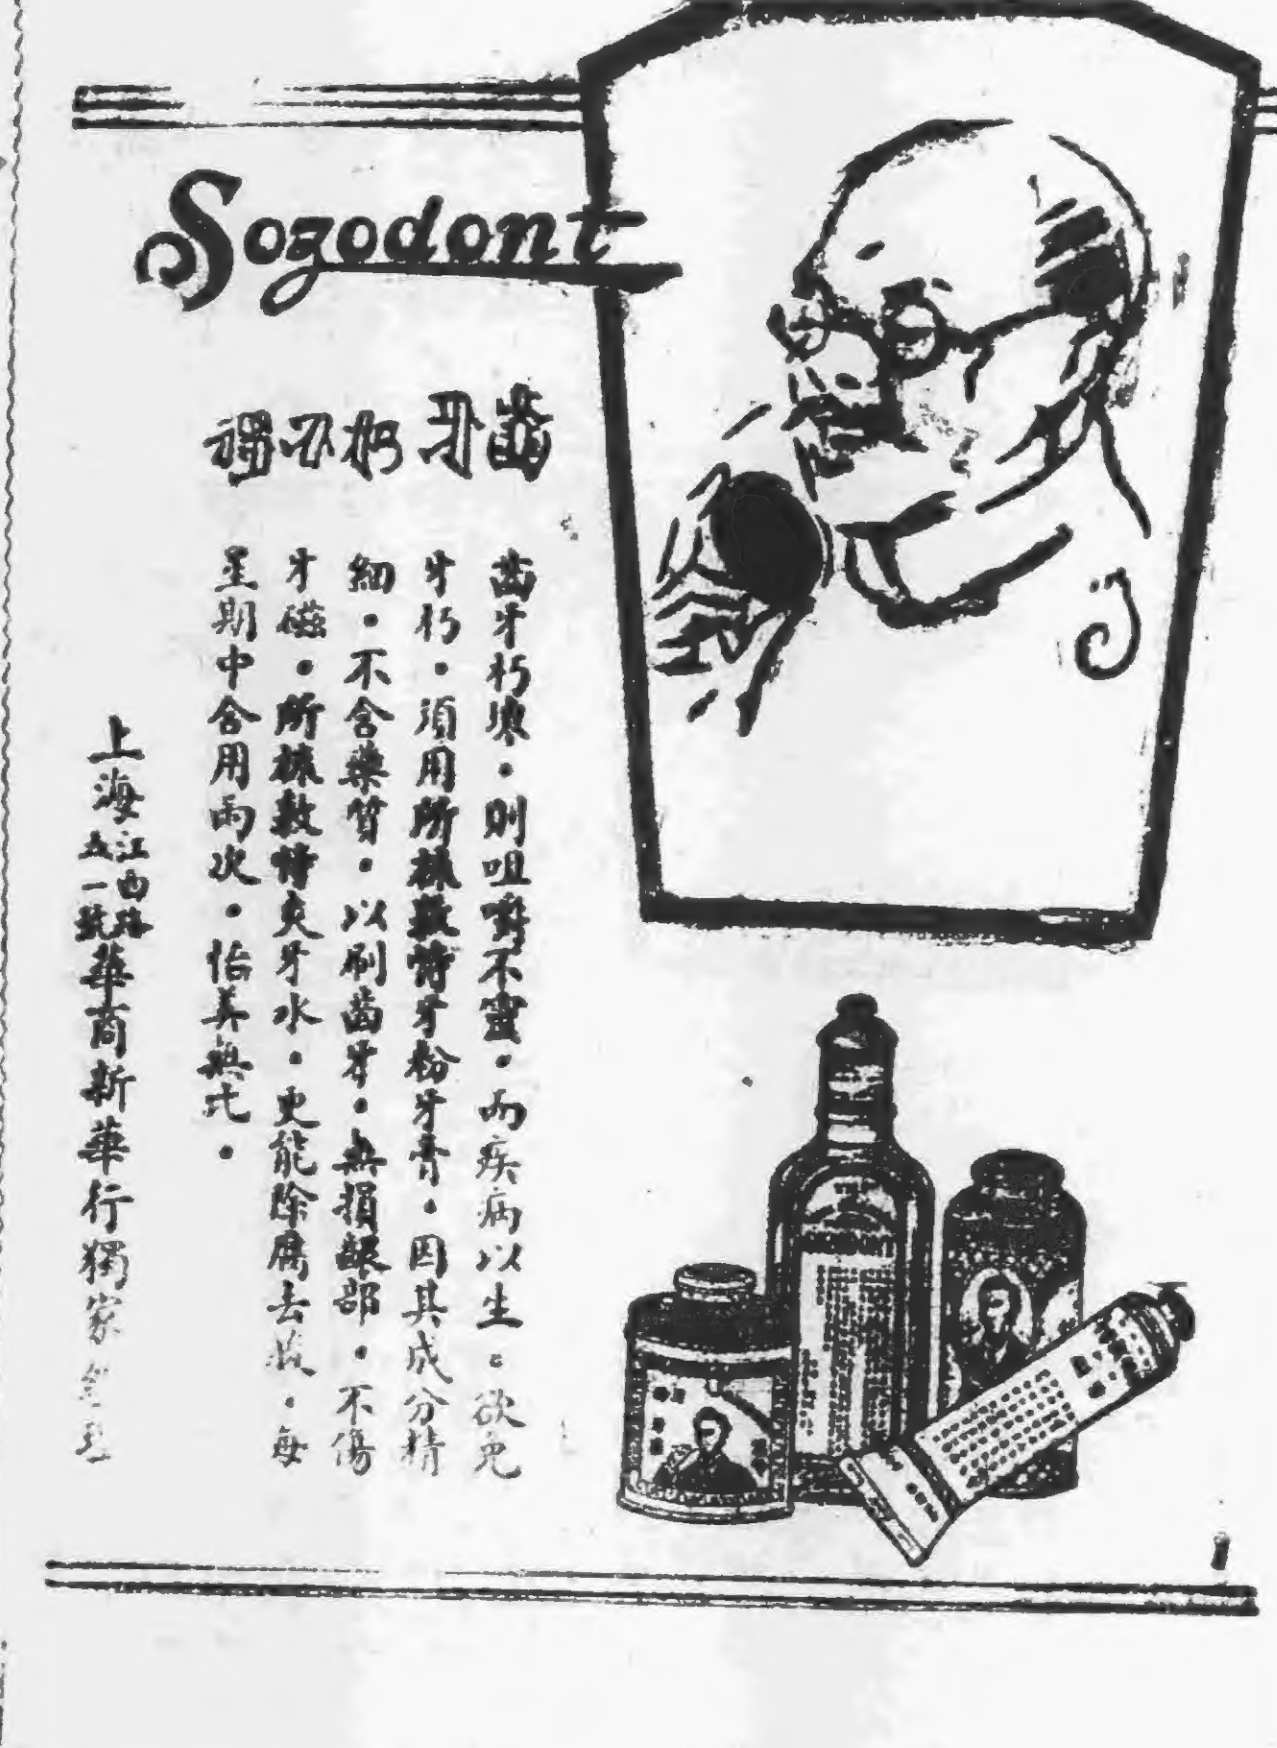 Sozodont
齒牙朽之禍
齒牙朽壞．則咀嚼不靈．而疾病以生。欲免
牙朽．須用所樣敦特牙粉牙膏．因其成分精
細．不含藥質．以刷齒牙．無損齦部．不傷
牙磁．所樣敦特爽牙水．更能除腐去．每
星期中含用兩次．怡美無比．
上海江西路五一號華商新華行獨家經理
SOZODONT